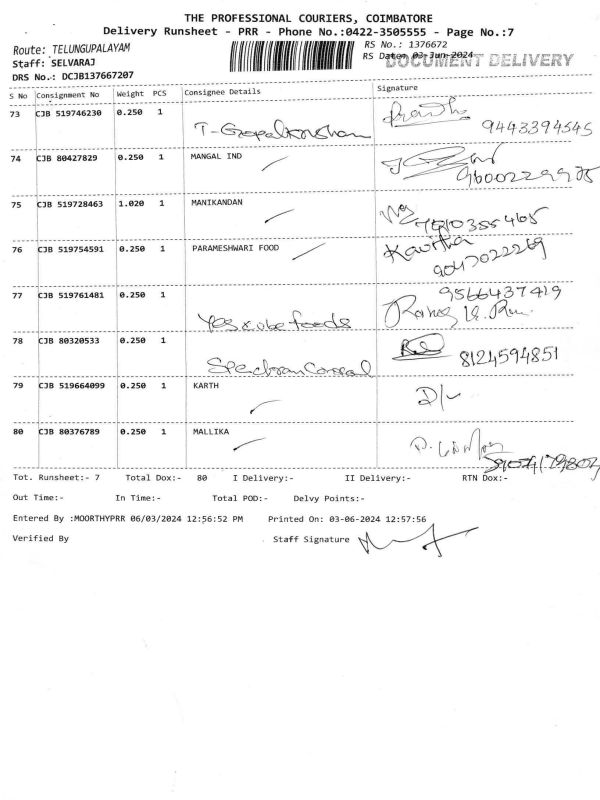 THE PROFESSIONAL COURIERS, COIMBATORE
Delivery Runsheet - PRR - Phone No.:0422-3505555 - Page No.:7
Route: TELUNGUPALAYAM
RS No.: 1376672
Staff: SELVARAJ
RS Date: 03-Jun-2024
DOCUMENT DELIVERY
DRS No.: DCJB137667207
S No Consignment No Weight PCS Consignee Details Signature
73 CJB 519746230 0.250 1
9443394545
74 CJB 80427829 0.250 1 MANGAL IND
75 CJB 519728463 1.020 1 MANIKANDAN
76 CJB 519754591 0.250 1 PARAMESHWARI FOOD Kavitha
9047022269
77 CJB 519761481 0.250 1 9566437419
foods
78 CJB 80320533 0.250 1
8124594851
79 CJB 519664099 0.250 1 KARTH
80 CJB 80376789 0.250 1 MALLIKA
Tot. Runsheet:- 7 Total Dox:- 80 I Delivery:- II Delivery:- RTN Dox:-
Out Time:- In Time:- Total POD:- Delvy Points:-
Entered By :MOORTHYPRR 06/03/2024 12:56:52 PM Printed On: 03-06-2024 12:57:56
Verified By Staff Signature